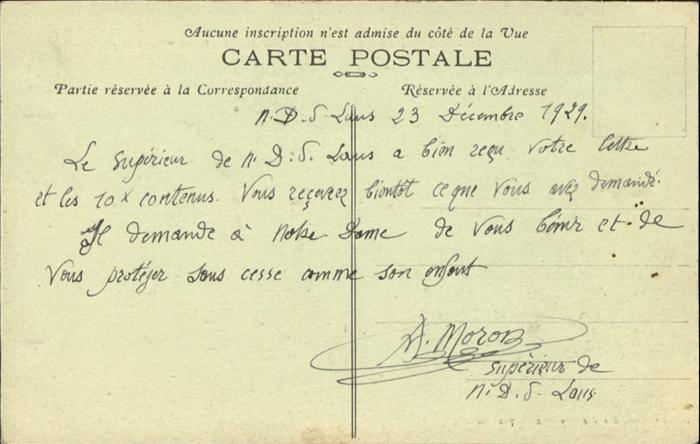 Aucune inscription n'est admise du côté de la Vue
CARTE POSTALE
Partie réservée à la Correspondance
Réservée à l'Adresse
N. D. S. Laus 23 Décembre 1929.
Le Supérieur de N. D. S. Laus a bien reçu votre lettre
et les 10 x contenus. Vous recevrez bientôt ce que vous avez demandé.
Il demande à Notre-Dame de vous bénir et de
vous protéger sans cesse comme son enfant
A. Moron
Supérieur de
N. D. S. Laus